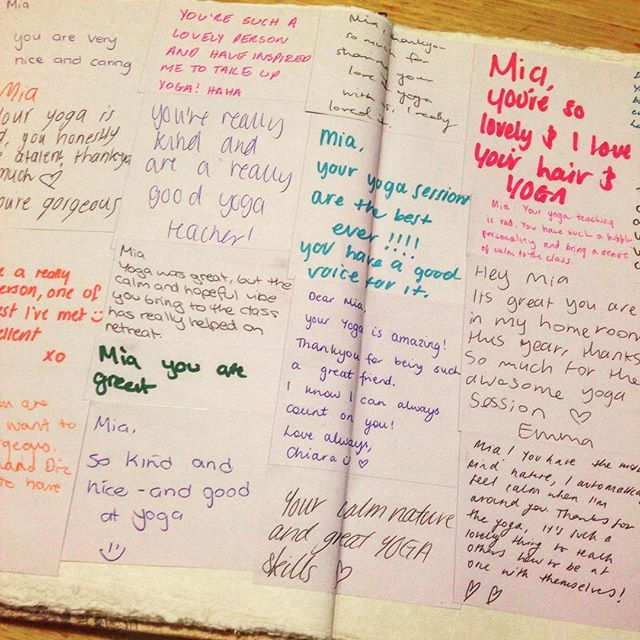 Mia
you are very
nice and caring
YOU'RE SUCH A
LOVELY PERSON
AND HAVE INSPIRED
ME TO TAKE UP
YOGA! HAHA
Mia, Thankyou
so much for
sharing your
love of yoga
with us, I really
loved it.
Mia,
you're so
lovely & I love
your hair &
YOGA
Mia
your yoga is
you honestly
talent, thankyou
much ♡
you're gorgeous
you're really
kind and
are a really
good yoga
teacher!
Mia,
your yoga sessions
are the best
ever !!!!
you have a good
voice for it.
Mia - Your yoga teaching
is rad. You have such a bubbly
personality and bring a sense
of calm to the class.
a really
person, one of
best I've met ☺
xo
Mia
Yoga was great, but the
calm and hopeful vibe
you bring to the class
has really helped on
retreat.
Mia you are
greest
Dear Mia,
your Yoga is amazing!
Thankyou for being such
a great friend.
I know I can always
count on you!
Love always,
Chiara ☺ ♡
Hey Mia
Its great you are
in my homeroom
this year, thanks
so much for the
awesome yoga
session ♡
Emma
are
want to
gorgeous.
and
to have
Mia,
so kind and
nice - and good
at yoga
☺
Your calm nature
and great YOGA
skills ♡
Mia! You have the most
kind nature, I automatically
feel calm when I'm
around you. Thanks for
the yoga, it's such a
lovely thing to teach
others how to be at
one with themselves!
♡ ♡